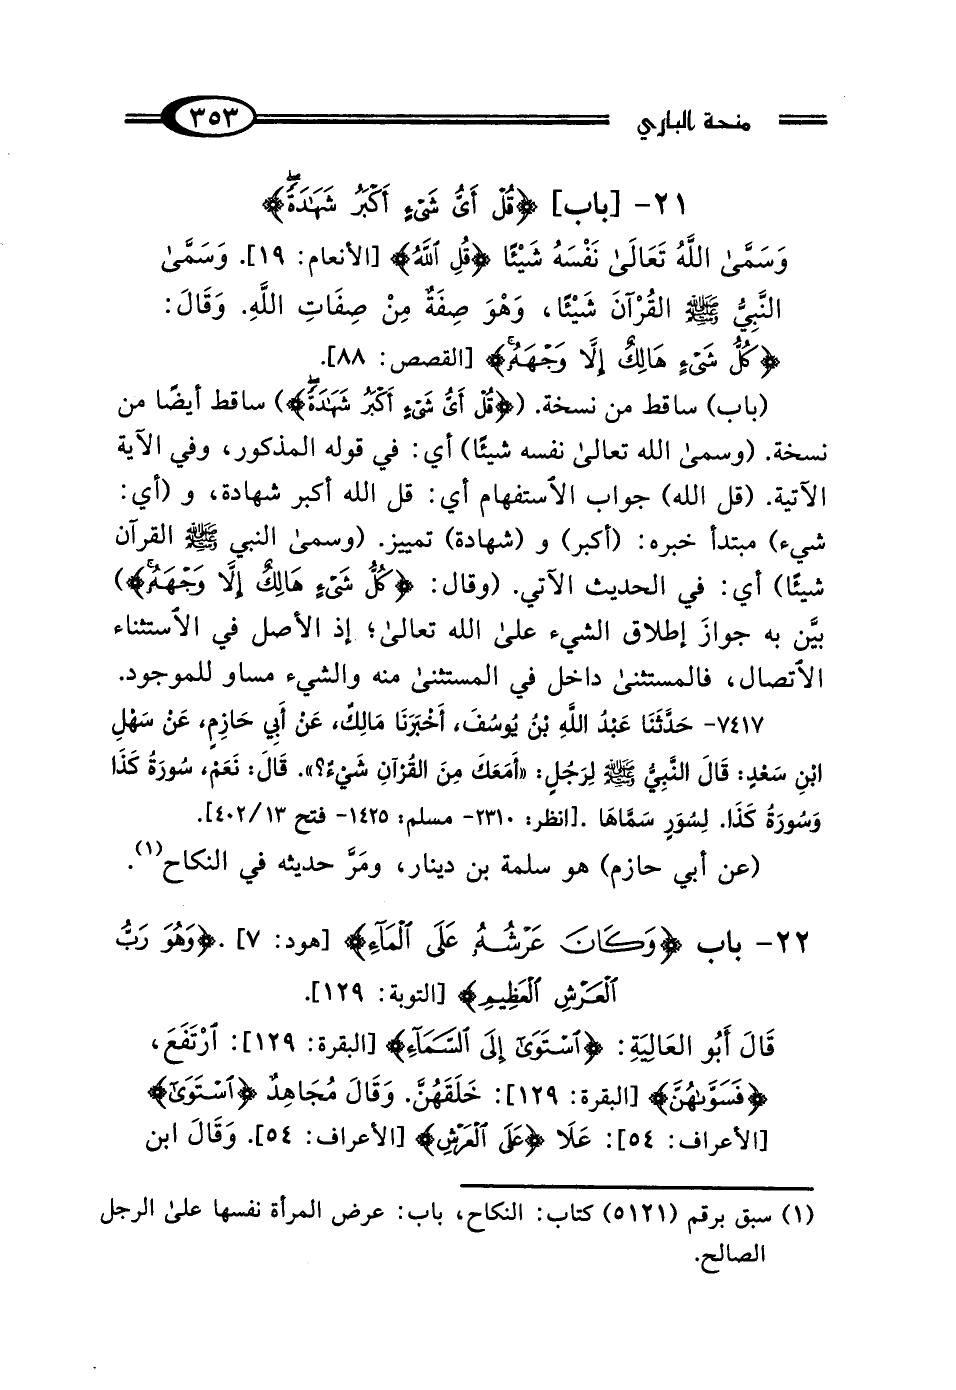 منحة الباري ٣٥٣
٢١- [باب] ﴿قُلْ أَىُّ شَىْءٍ أَكْبَرُ شَهَٰدَةًۖ﴾
وَسَمَّىٰ اللَّهُ تَعَالَىٰ نَفْسَهُ شَيْئًا ﴿قُلِ ٱللَّهُ﴾ [الأنعام: ١٩]. وَسَمَّىٰ
النَّبِيُّ ﷺ القُرْآنَ شَيْئًا، وَهْوَ صِفَةٌ مِنْ صِفَاتِ اللَّهِ. وَقَالَ:
﴿كُلُّ شَىْءٍ هَالِكٌ إِلَّا وَجْهَهُۥ﴾ [القصص: ٨٨].
(باب) ساقط من نسخة. (﴿قُلْ أَىُّ شَىْءٍ أَكْبَرُ شَهَٰدَةًۖ﴾) ساقط أيضًا من
نسخة. (وسمىٰ الله تعالىٰ نفسه شيئًا) أي: في قوله المذكور، وفي الآية
الآتية. (قل الله) جواب الٱستفهام أي: قل الله أكبر شهادة، و (أي:
شيء) مبتدأ خبره: (أكبر) و (شهادة) تمييز. (وسمىٰ النبي ﷺ القرآن
شيئًا) أي: في الحديث الآتي. (وقال: ﴿كُلُّ شَىْءٍ هَالِكٌ إِلَّا وَجْهَهُۥ﴾)
بيَّن به جوازَ إطلاق الشيء علىٰ الله تعالىٰ؛ إذ الأصل في الٱستثناء
الٱتصال، فالمستثنىٰ داخل في المستثنىٰ منه والشيء مساو للموجود.
٧٤١٧- حَدَّثَنَا عَبْدُ اللَّهِ بْنُ يُوسُفَ، أَخْبَرَنَا مَالِكٌ، عَنْ أَبِي حَازِمٍ، عَنْ سَهْلِ
ابْنِ سَعْدٍ: قَالَ النَّبِيُّ ﷺ لِرَجُلٍ: «أَمَعَكَ مِنَ القُرْآنِ شَيْءٌ؟». قَالَ: نَعَمْ، سُورَةُ كَذَا
وَسُورَةُ كَذَا. لِسُوَرٍ سَمَّاهَا .[انظر: ٢٣١٠- مسلم: ١٤٢٥- فتح ١٣/٤٠٢].
(عن أبي حازم) هو سلمة بن دينار، ومَرَّ حديثه في النكاح(١).
٢٢- باب ﴿وَكَانَ عَرْشُهُۥ عَلَى ٱلْمَآءِ﴾ [هود: ٧] .﴿وَهُوَ رَبُّ
ٱلْعَرْشِ ٱلْعَظِيمِ﴾ [التوبة: ١٢٩].
قَالَ أَبُو العَالِيَةِ: ﴿ٱسْتَوَىٰٓ إِلَى ٱلسَّمَآءِ﴾ [البقرة: ١٢٩]: ٱرْتَفَعَ،
﴿فَسَوَّىٰهُنَّ﴾ [البقرة: ١٢٩]: خَلَقَهُنَّ. وَقَالَ مُجَاهِدٌ ﴿ٱسْتَوَىٰٓ﴾
[الأعراف: ٥٤]: عَلَا ﴿عَلَى ٱلْعَرْشِ﴾ [الأعراف: ٥٤]. وَقَالَ ابن
(١) سبق برقم (٥١٢١) كتاب: النكاح، باب: عرض المرأة نفسها علىٰ الرجل
الصالح.